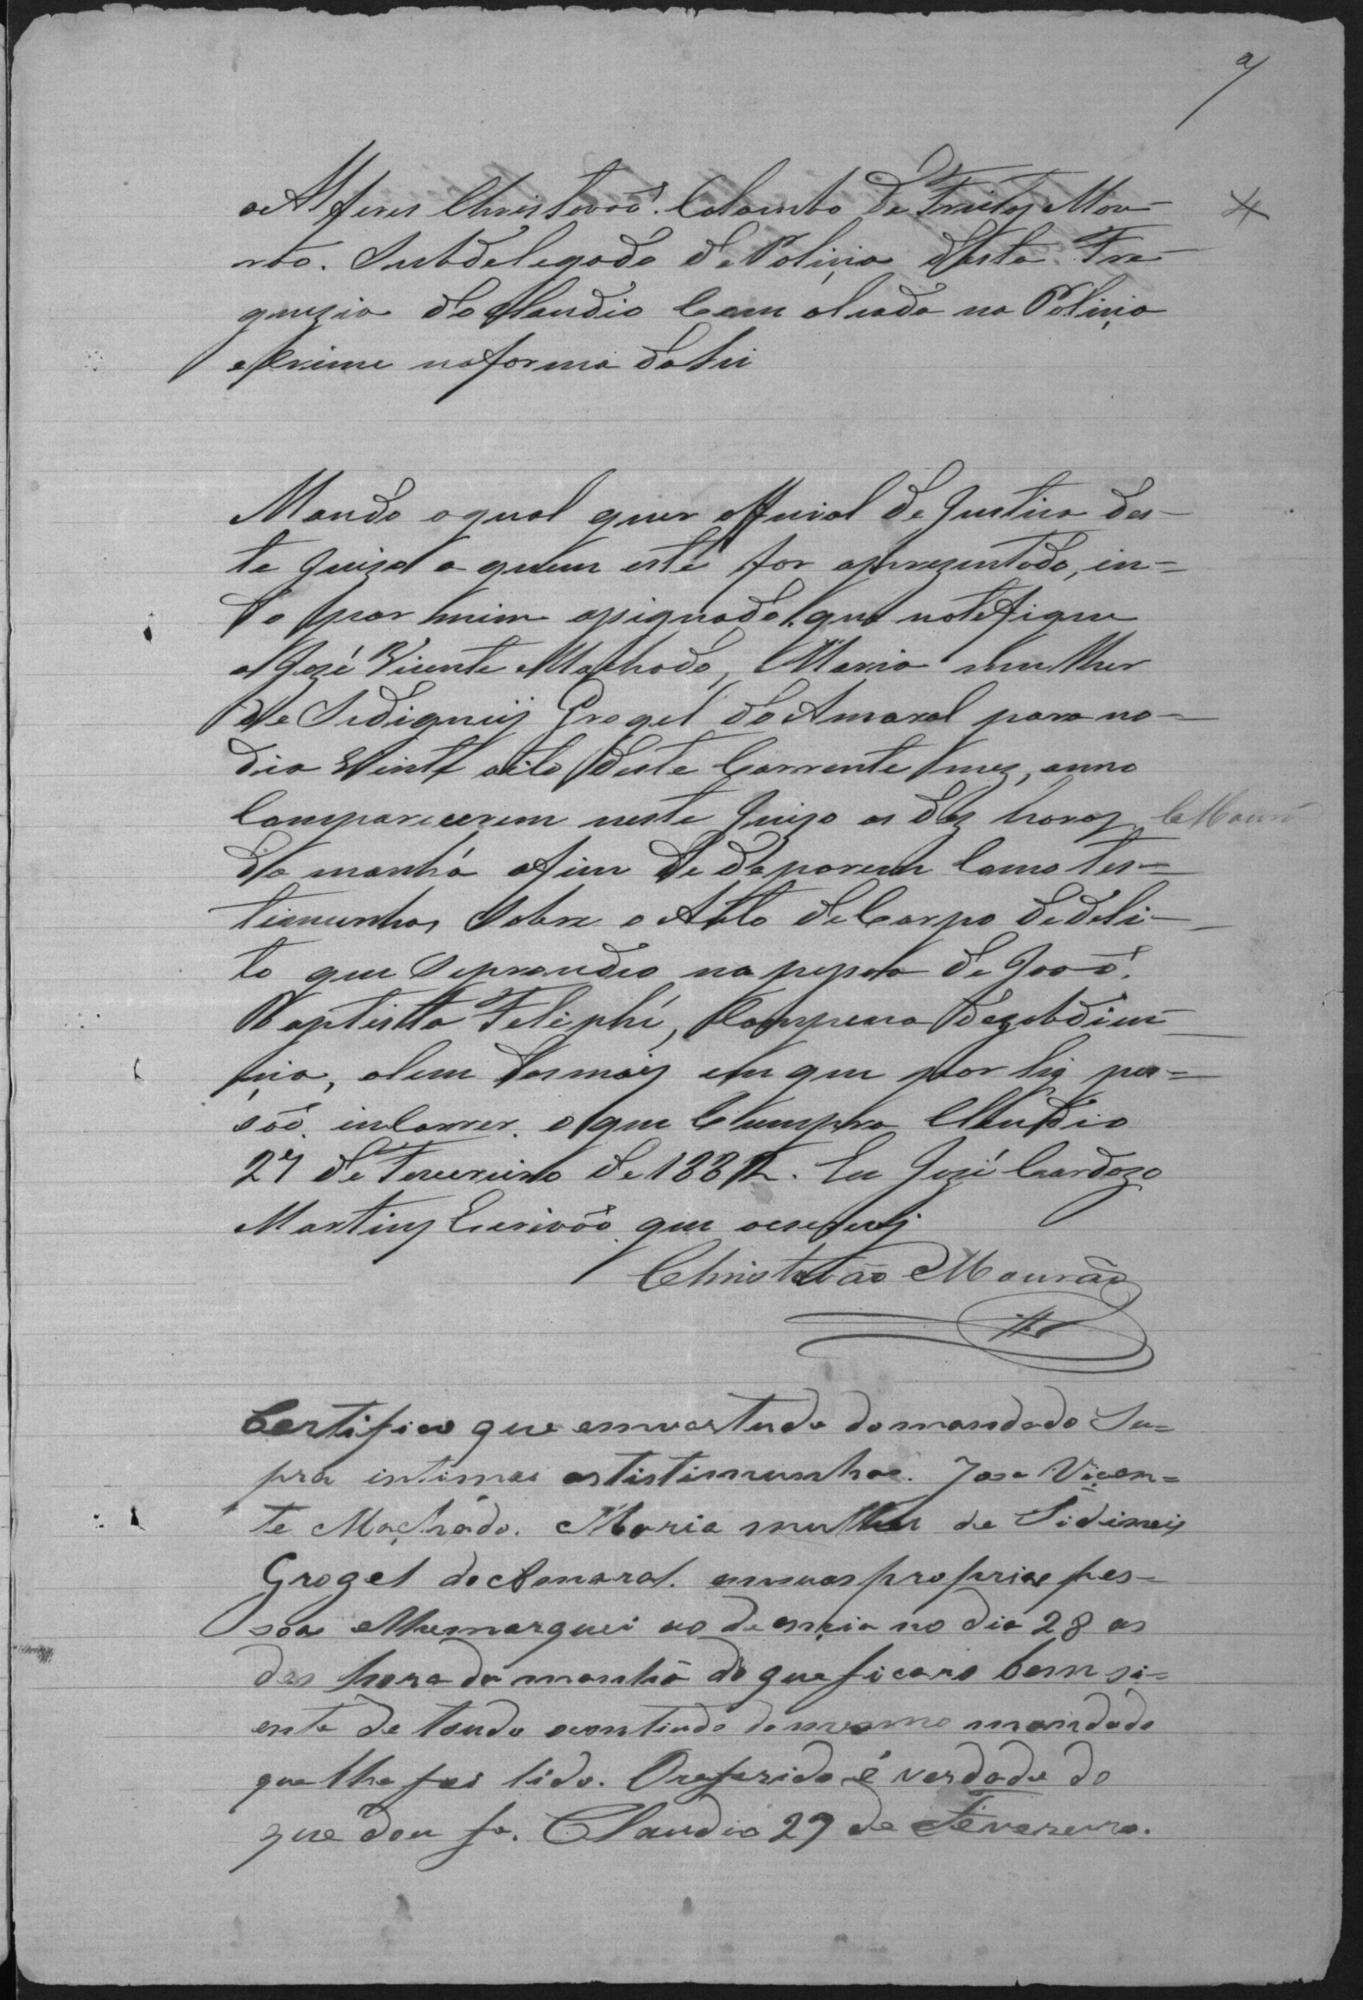 oAlferes Christovaõ. Colombo de Freitas Mou-
rão. Subdelegado de Poliçia desta Fre-
guezia do Claudio Com alsada na Poliçia
eCrime naforma daLei
Mando aqual quer official de Justica des-
te Juizo a quem este for aprezentado, in-
do por mim asignado, que notefique
a José Vicente Machado, Maria mulher
de Sidigneis Grogel doAmaral para no
dia Vinte oito deste Corrente mez, anno
Comparecerem neste Juizo as dez horas CMourão
da manhá afim de deporem Como tes-
timunhas Sobre o Auto deCorpo dedeli-
to que Seprosedeo na pesoa de Joaõ.
Baptista Feliphi, Compena Dezobdien-
çia, alem dasmais em que por lei pos-
saõ. inCorrer. o que Cumpra Claudio
27 de Fevereiro de 1882. Eu José Cardozo
Martins Escrivaõ. que oescrevi
Christovão Mourão
Certifico que emvertude domandado Su-
pra intimei astistimunhas. Jose Vicen-
te Machado. Maria mulher de Sidineis
Grogel doAmaral. emsuas proprias pes-
soa elhemarquei audeençia no dia 28 as
des hora da manhã do que ficaro bem si-
ente de toudo ocontiudo domesmo mandado
que lhe foi lido. Oreferido é verdade do
que dou fe. Claudio 27 de Fevereuro.